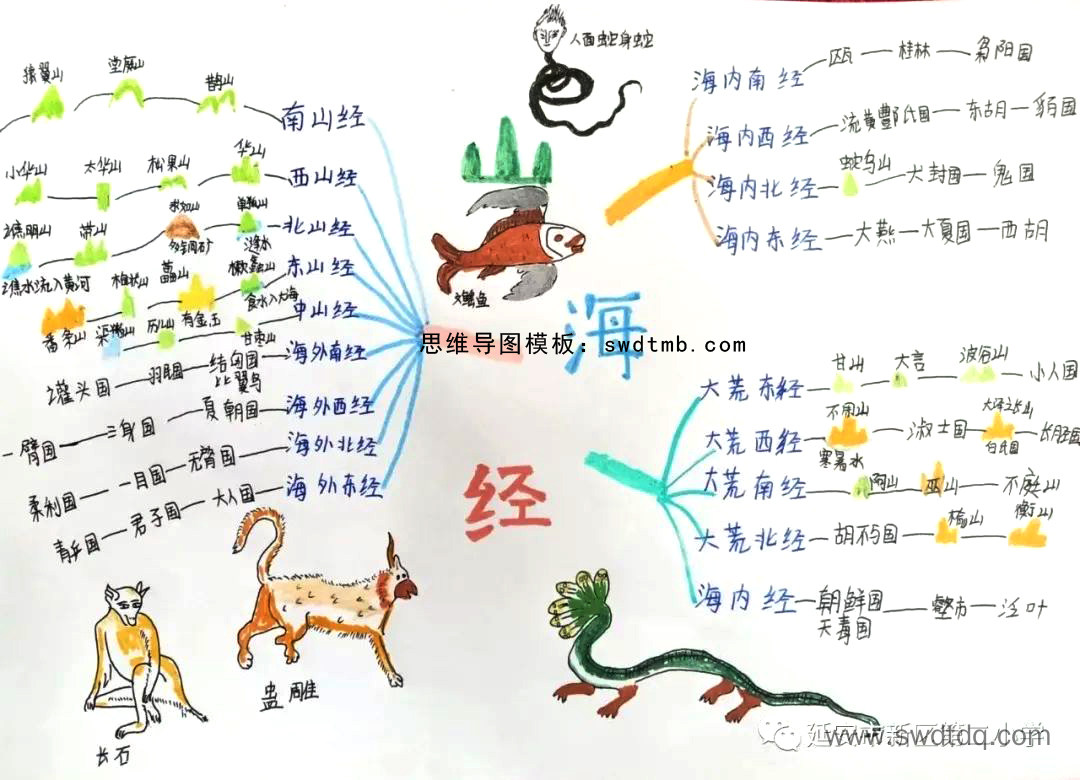 人面蛇身蛇
海内南经
瓯
桂林
枭阳国
海内西经
流黄酆氏国
东胡
貊国
海内北经
蛇乌山
大封国
鬼国
海内东经
大燕
大夏国
西胡
猿翼山
堂庭山
鹊山
南山经
小华山
太华山
松果山
华山
西山经
谯明山
带山
求如山
多铜矿
单狐山
逢水
北山经
谯水流入黄河
番条山
枸状山
藟山
有金玉
樕䗤山
食水入大海
东山经
渠猪山
历山
甘枣山
中山经
讙头国
羽民国
结匈国
比翼鸟
海外南经
一臂国
三身国
夏朝国
海外西经
柔利国
一目国
无䏿国
海外北经
青丘国
君子国
大人国
海外东经
鱼
海
经
思维导图模板：swdtmb.com
大荒东经
甘山
大言
波谷山
小人国
大荒西经
不周山
寒暑水
淑士国
大泽之长山
白氏国
长胫国
大荒南经
阿山
巫山
不庭山
大荒北经
胡不与国
榆山
衡山
海内经
朝鲜国
天毒国
壑市
泛叶
蛊雕
长右
www.swdtdq.com